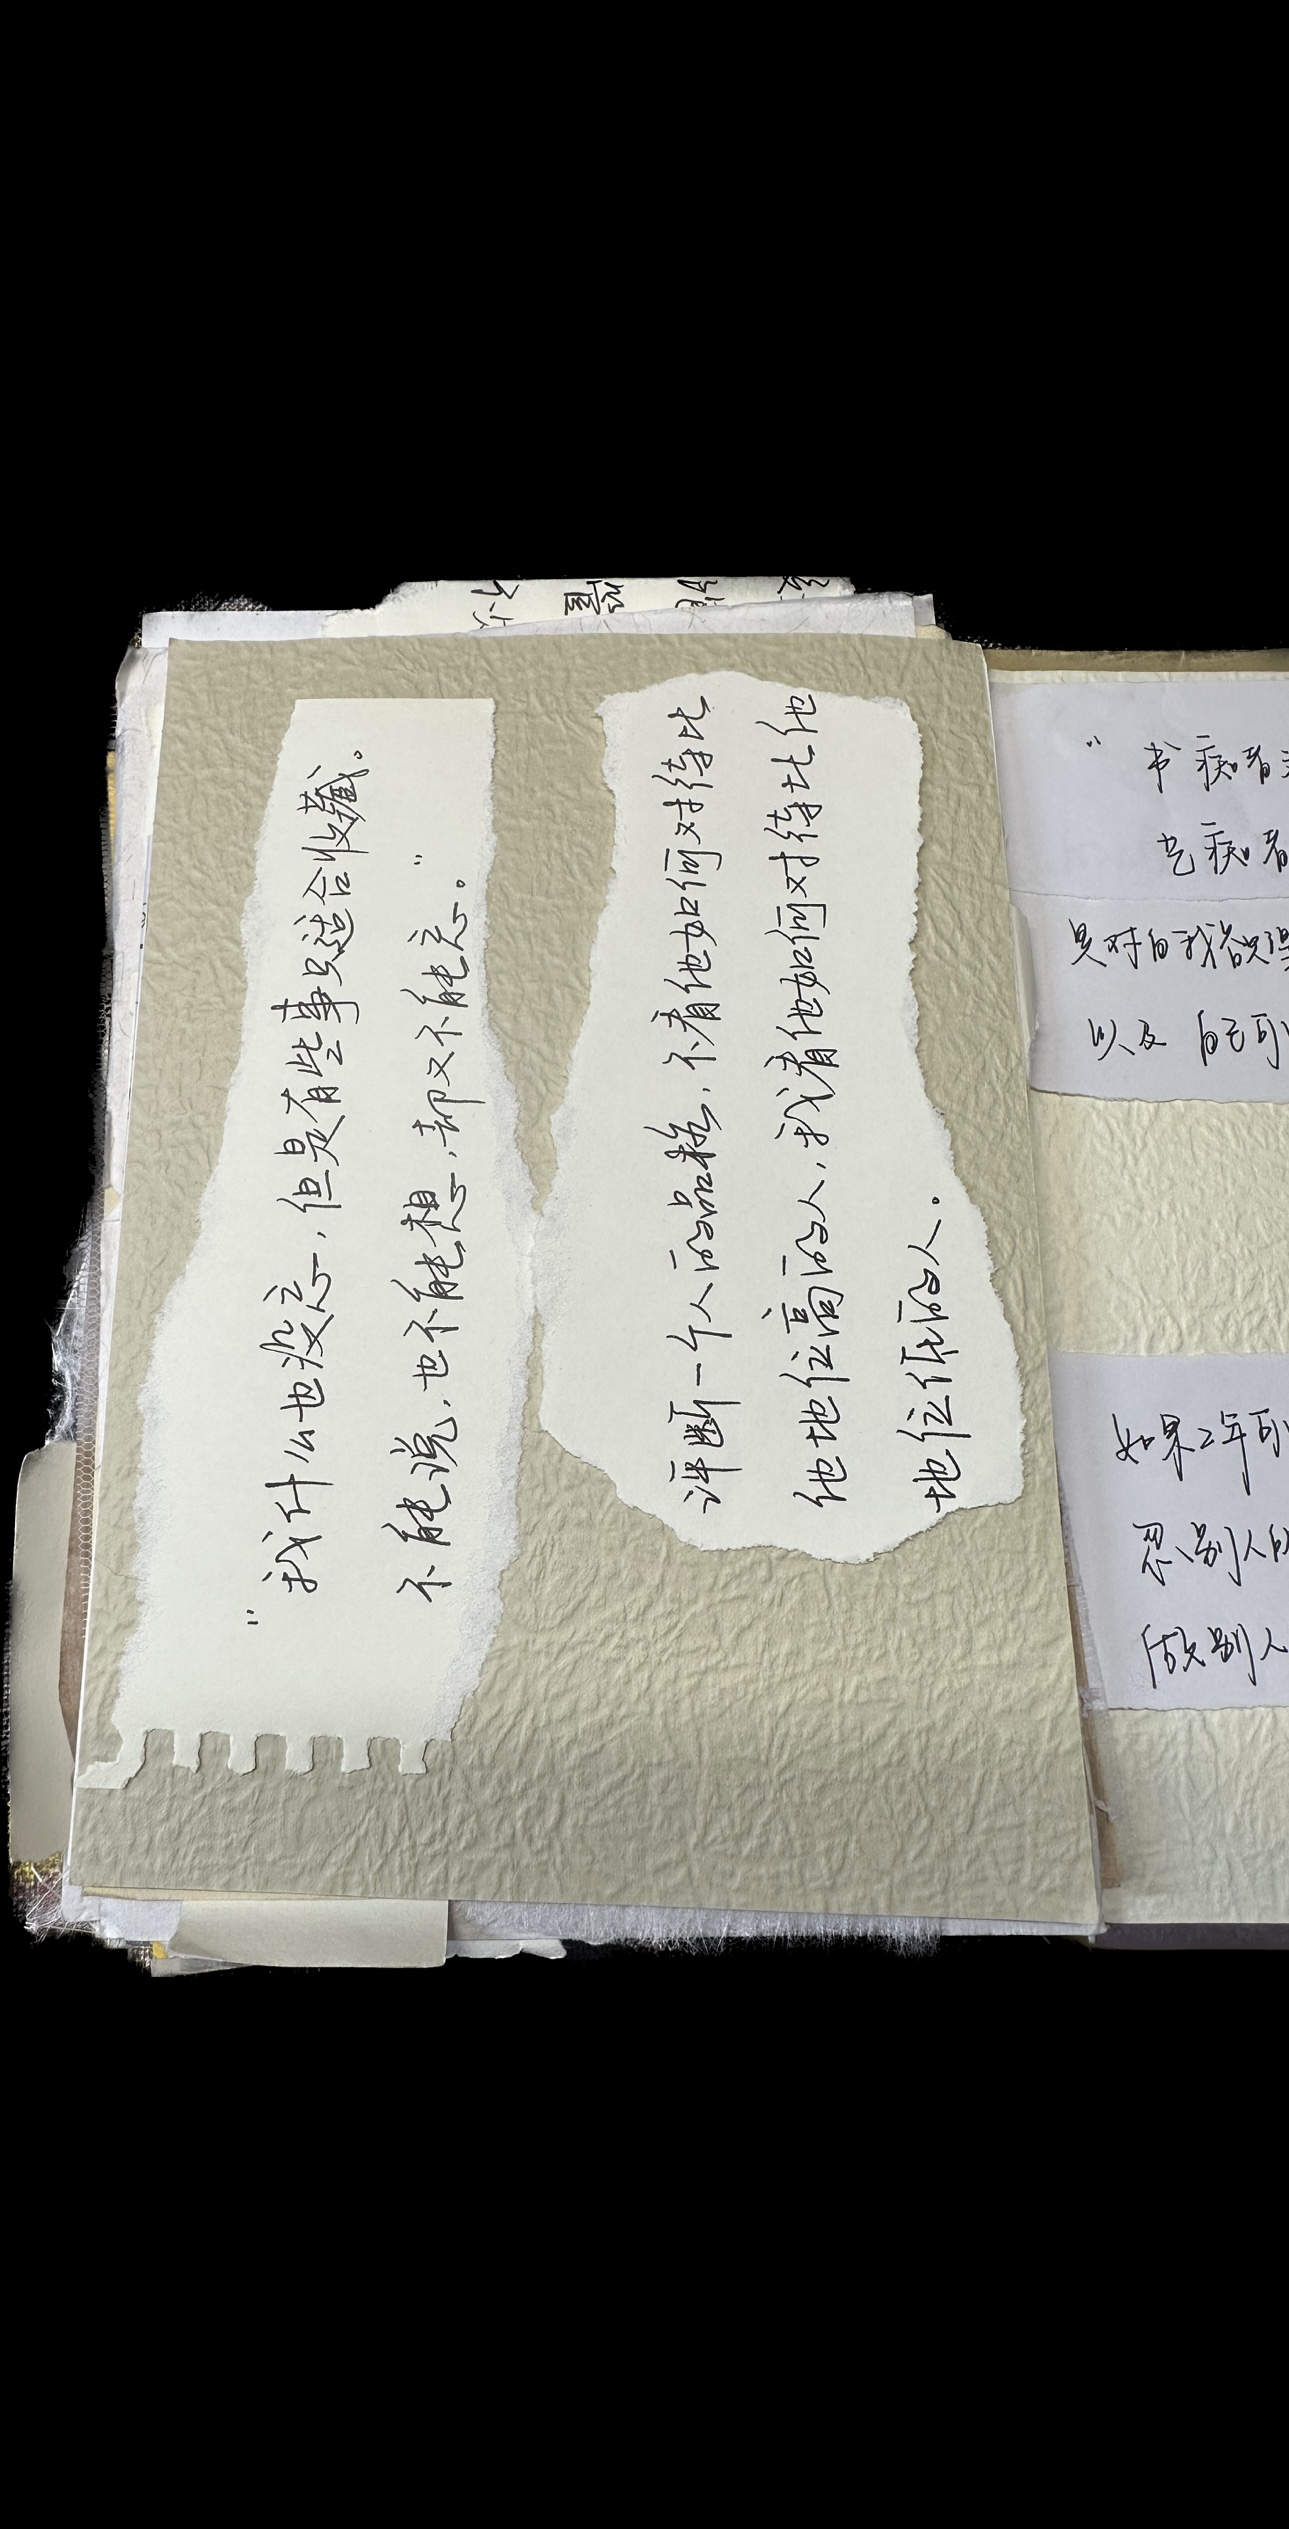 "我什么也没忘，但是有些事只适合收藏。
不能说，也不能想，却又不能忘。"
评断一个人的品格，不看他如何对待比
他地位高的人，我看他如何对待比他
地位低的人。
" 书痴者
艺痴者
是对自我
以及 自己可
如果2年
忍别人
做别人